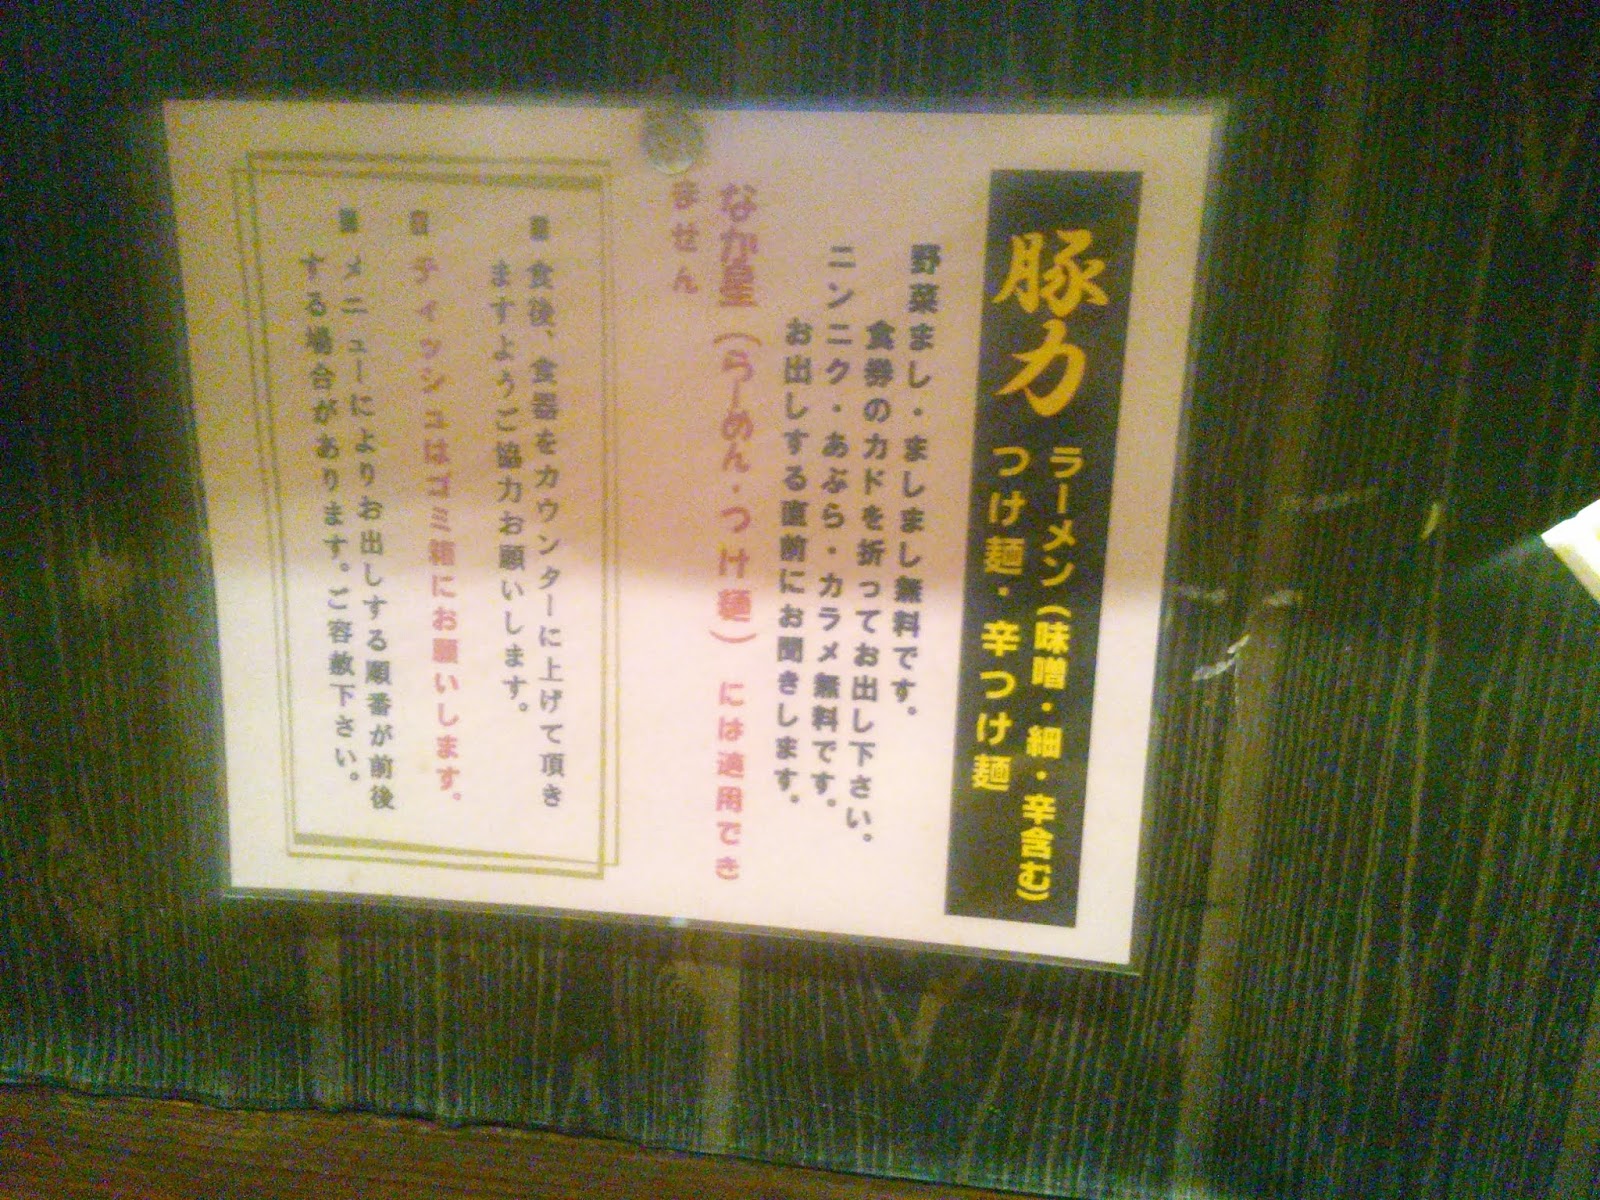 豚力
ラーメン（味噌・細・辛含む）
つけ麺・辛つけ麺
野菜まし・ましまし無料です。
食券のカドを折ってお出し下さい。
ニンニク・あぶら・カラメ無料です。
お出しする直前にお聞きします。
なか星（らーめん・つけ麺）には適用でき
ません
■ 食後、食器をカウンターに上げて頂き
ますようご協力お願いします。
■ ティッシュはゴミ箱にお願いします。
■ メニューによりお出しする順番が前後
する場合があります。ご容赦下さい。